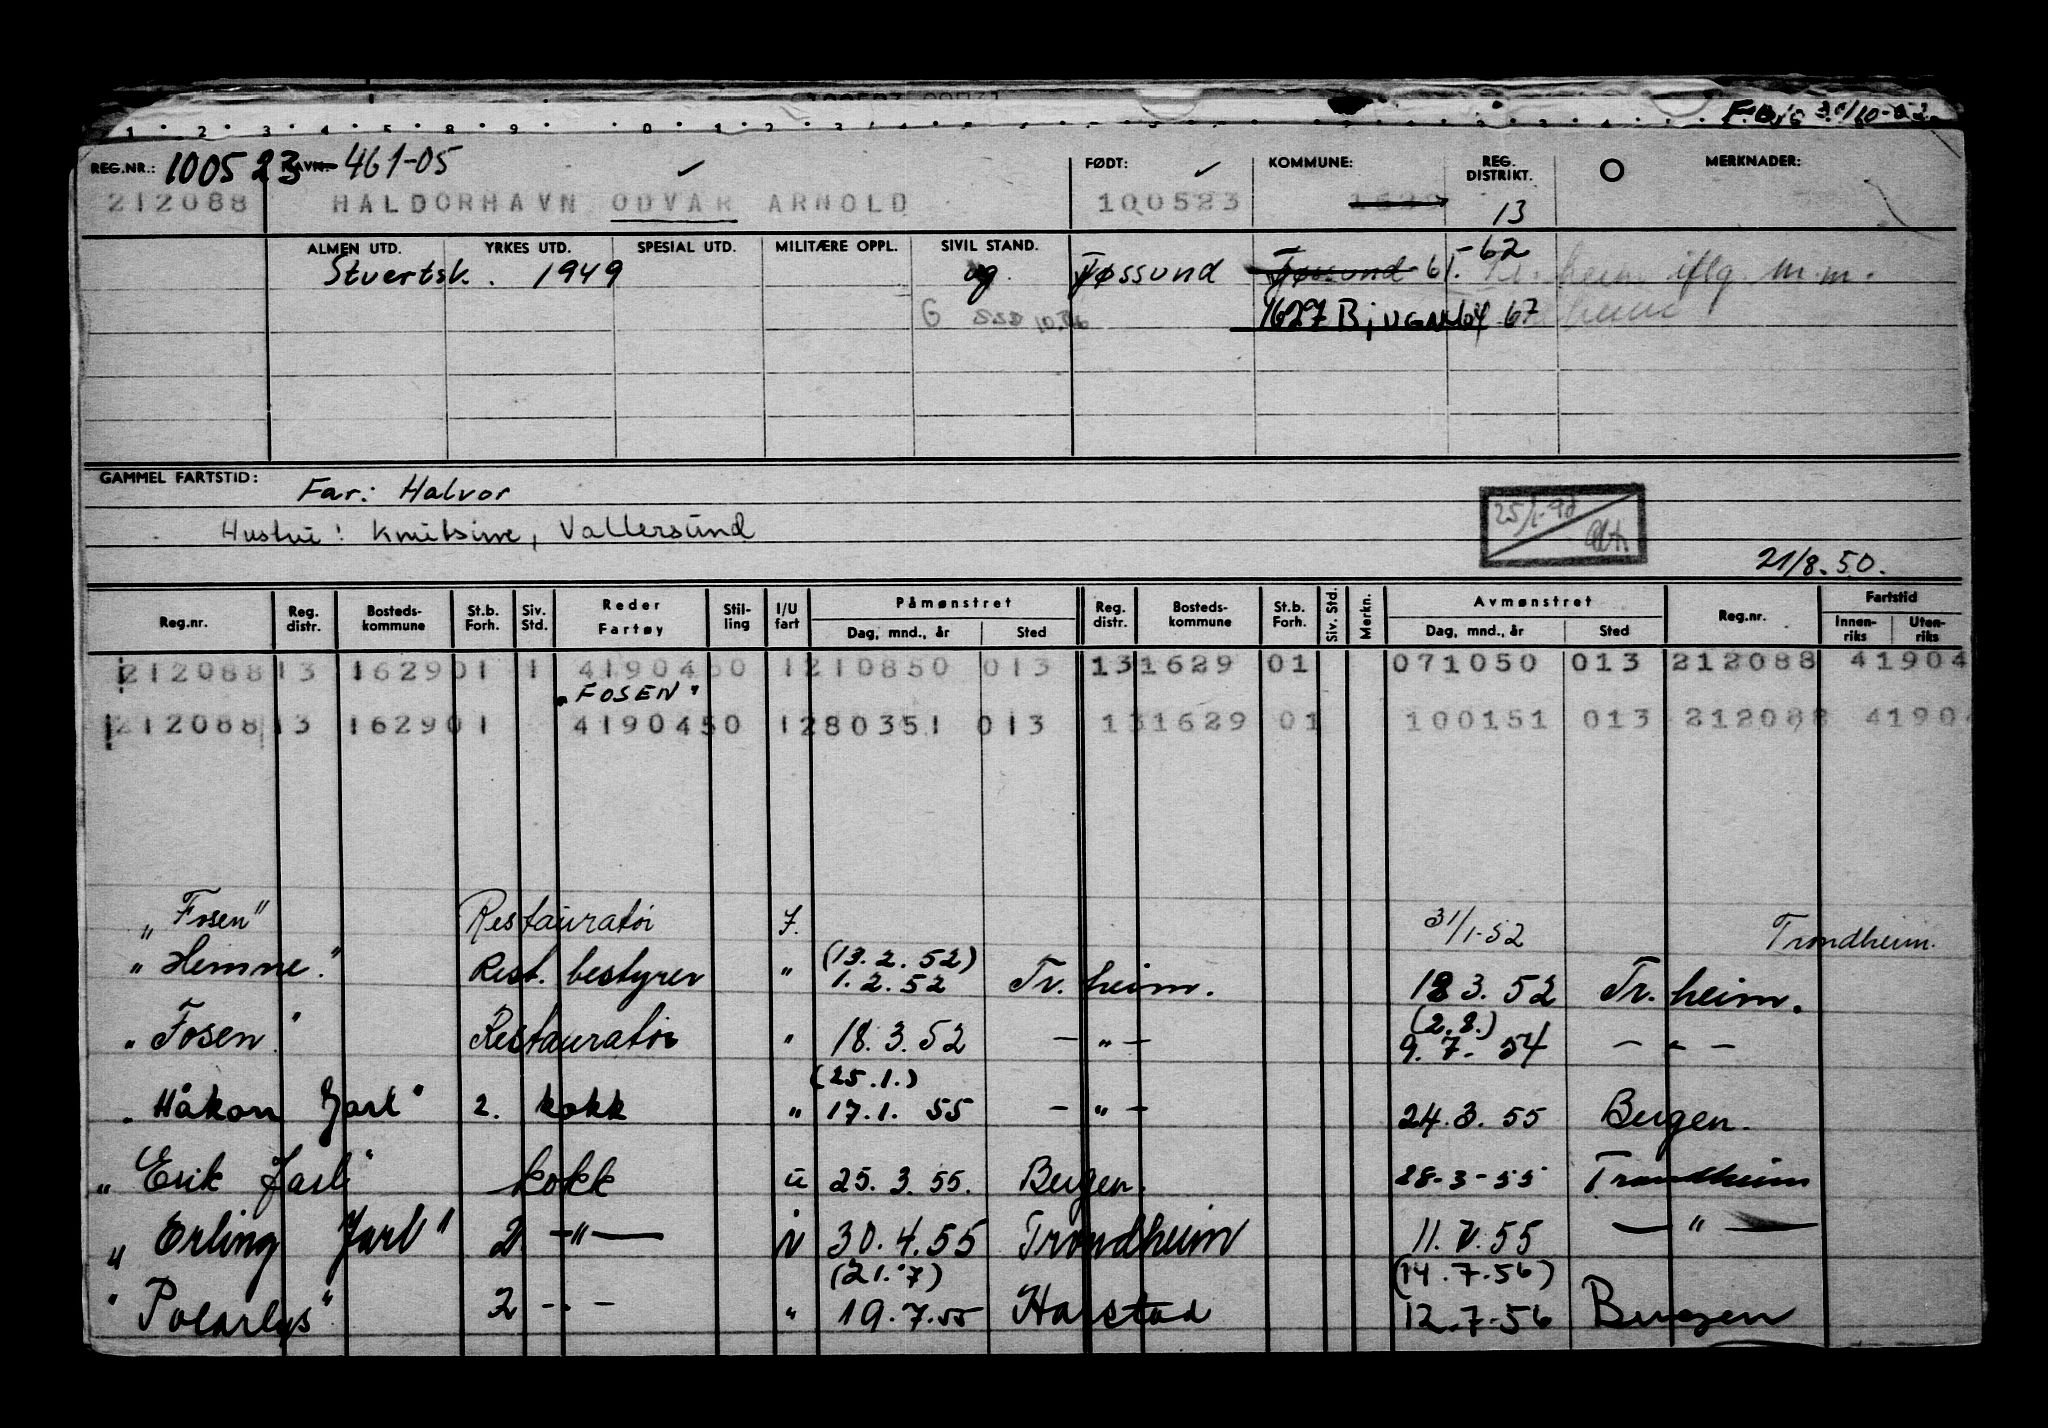 1 2 3 4 5 8 9 0 1 2
REG.NR.: 100523 NAVN: 461-05 FØDT: KOMMUNE: REG. DISTRIKT. MERKNADER:
212088 HALDORHAVN ODVAR ARNOLD 100523 1629 13
ALMEN UTD. YRKES UTD. SPESIAL UTD. MILITÆRE OPPL. SIVIL STAND.
Stuertsk. 1949 ug. Jøssund Jøssund 61.-62 iflg m.m.
G 1627 Bjugn 67
GAMMEL FARTSTID: Far: Halvor
Hustru: Knutsine, Vallersund
21/8.50.
Reg.nr. Reg. distr. Bosteds-kommune St.b. Forh. Siv. Std. Reder Fartøy Stil-ling I/U fart Påmønstret Dag, mnd., år Sted Reg. distr. Bosteds-kommune St.b. Forh. Siv. Std. Merkn. Avmønstret Dag, mnd., år Sted Reg.nr. Fartstid Innen-riks Uten-riks
212088 13 1629 01 1 4190450 1 210850 013 13 1629 01 071050 013 212088 41904
"FOSEN"
212088 13 1629 01 4190450 1 280351 013 13 1629 01 100151 013 212088 4190
"Fosen" Restauratør I. 31/1-52 Trondheim.
"Hemne." Rest. bestyrer " (13.2.52) 1.2.52 Tr.heim. 18 3.52 Tr.heim.
"Fosen" Restauratør " 18.3.52 - " - (2.8.) 9.7.54 - " -
"Håkon Jarl" 2. kokk " (25.1.) 17.1.55 - " - 24.3.55 Bergen.
"Erik Jarl" kokk u 25.3.55. Bergen. 28-3-55 Trondheim
"Erling Jarl" 2 - " - i 30.4.55 Trondheim 11.V.55 - " -
"Polarlys" 2 - " - " (21.7) 19.7.55 Harstad (14.7.56) 12.7.56 Bergen